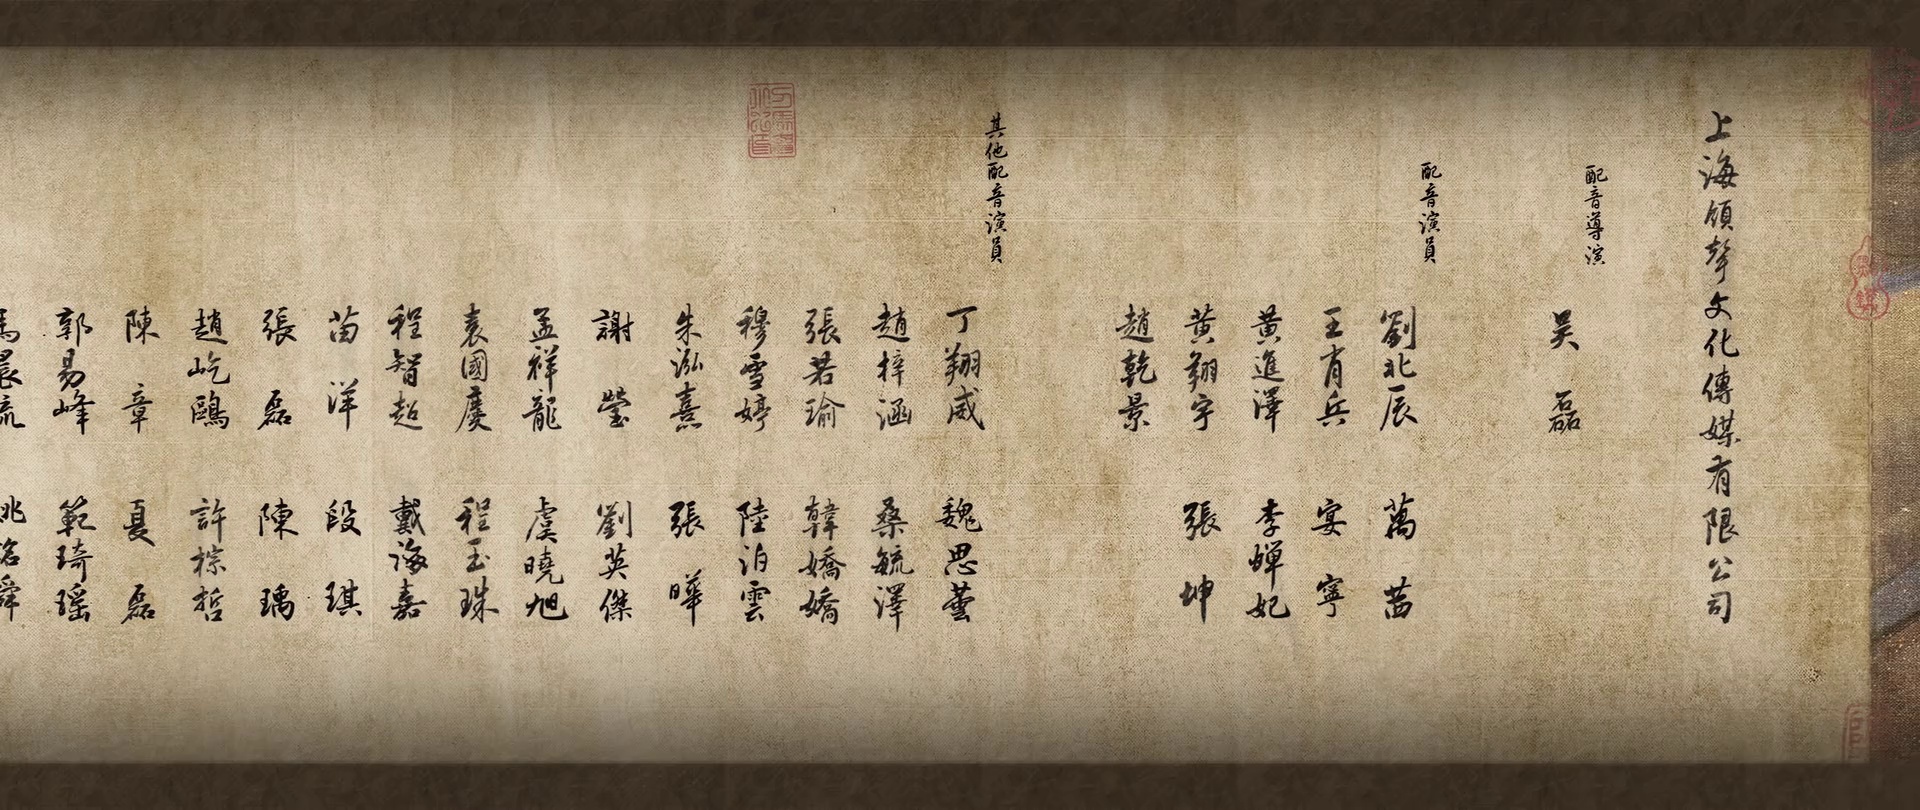 上海領聲文化傳媒有限公司
配音導演
吴磊
配音演員
劉北辰 萬茜
王肖兵 宴寧
黄進澤 李蟬妃
黄翔宇 張坤
趙乾景
其他配音演員
丁翔威 魏思蕓
趙梓涵 桑毓澤
張若瑜 韓嬌嬌
穆雪婷 陸泊雲
朱泓熹 張曄
謝瑩 劉英傑
孟祥龍 虞曉旭
袁國慶 程玉珠
程智超 戴海嘉
苗洋 段琪
張磊 陳瑀
趙屹鷗 許棕哲
陳章 夏磊
郭易峰 範琦瑶